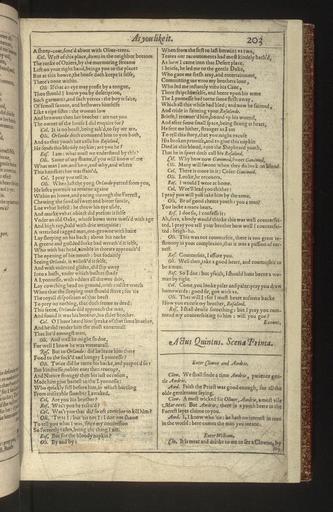 As you like it.
203
A sheep-coat, fenc'd about with Olive-trees.
Cel. West of this place, down in the neighbor bottom
The ranke of Oziers, by the murmuring streame
Left on your right hand, brings you to the place:
But at this howre, the house doth keepe it selfe,
There's none within.
Oli. If that an eye may profit by a tongue,
Then should I know you by description,
Such garments, and such yeeres: the boy is faire,
Of femall fauour, and bestowes himselfe
Like a ripe sister: the woman low
And browner then her brother: are not you
The owner of the house I did enquire for?
Cel. It is no boast, being ask'd, to say we are.
Oli. Orlando doth commend him to you both,
And to that youth hee calls his Rosalind,
He sends this bloudy napkin; are you he?
Ros. I am: what must we vnderstand by this?
Oli. Some of my shame, if you will know of me
What man I am, and how, and why, and where
This handkercher was stain'd.
Cel. I pray you tell it.
Oli. When last the yong Orlando parted from you,
He left a promise to returne againe
Within an houre, and pacing through the Forrest,
Chewing the food of sweet and bitter fancie,
Loe what befell: he threw his eye aside,
And marke what obiect did present it selfe
Vnder an old Oake, whose bows were moss'd with age
And high top, bald with drie antiquitie:
A wretched ragged man, ore-growne with haire
Lay sleeping on his back; about his necke
A greene and guilded snake had wreath'd it selfe,
Who with her head, nimble in threats approach'd
The opening of his mouth: but sodainly
Seeing Orlando, it vnlink'd it selfe,
And with indented glides, did slip away
Into a bush, vnder which bushes shade
A Lyonnesse, with vdders all drawne drie,
Lay cowching head on ground, with catlike watch
When that the sleeping man should stirre; for 'tis
The royall disposition of that beast
To prey on nothing, that doth seeme as dead:
This seene, Orlando did approach the man,
And found it was his brother, his elder brother.
Cel. O I haue heard him speake of that same brother,
And he did render him the most vnnaturall
That liu'd amongst men.
Oli. And well he might so doe,
For well I know he was vnnaturall.
Ros. But to Orlando: did he leaue him there
Food to the suck'd and hungry Lyonnesse?
Oli. Twice did he turne his backe, and purpos'd so:
But kindnesse, nobler euer then reuenge,
And Nature stronger then his iust occasion,
Made him giue battell to the Lyonnesse:
Who quickly fell before him, in which hurtling
From miserable slumber I awaked.
Cel. Are you his brother?
Ros. Was't you he rescu'd?
Cel. Was't you that did so oft contriue to kill him?
Oli. 'Twas I: but 'tis not I: I doe not shame
To tell you what I was, since my conuersion
So sweetely tastes, being the thing I am.
Ros. But for the bloody napkin?
Oli. By and by:
When from the first to last betwixt vs two,
Teares our recountments had most kindely bath'd,
As how I came into that Desert place.
I briefe, he led me to the gentle Duke,
Who gaue me fresh aray, and entertainment,
Committing me vnto my brothers loue,
Who led me instantly vnto his Caue,
There stript himselfe, and heere vpon his arme
The Lyonnesse had torne some flesh away,
Which all this while had bled; and now he fainted,
And cride in fainting vpon Rosalinde.
Briefe, I recouer'd him, bound vp his wound,
And after some small space, being strong at heart,
He sent me hither, stranger as I am
To tell this story, that you might excuse
His broken promise, and to giue this napkin
Died in this bloud, vnto the Shepheard youth,
That he in sport doth call his Rosalind.
Cel. Why how now Ganimed, sweet Ganimed.
Oli. Many will swoon when they do look on bloud.
Cel. There is more in it; Cosen Ganimed.
Oli. Looke, he recouers.
Ros. I would I were at home.
Cel. Wee'll lead you thither:
I pray you will you take him by the arme.
Oli. Be of good cheere youth: you a man?
You lacke a mans heart.
Ros. I doe so, I confesse it:
Ah, sirra, a body would thinke this was well counterfeited,
I pray you tell your brother how well I counterfeited:
heigh-ho.
Oli. This was not counterfeit, there is too great testimony
in your complexion, that it was a passion of earnest.
Ros. Counterfeit, I assure you.
Oli. Well then, take a good heart, and counterfeit to
be a man.
Ros. So I doe: but yfaith, I should haue beene a woman
by right.
Cel. Come, you looke paler and paler: pray you draw
homewards: good sir, goe with vs.
Oli. That will I: for I must beare answere backe
How you excuse my brother, Rosalind.
Ros. I shall deuise something: but I pray you commend
my counterfeiting to him: will you goe?
Exeunt.
Actus Quintus. Scena Prima.
Enter Clowne and Awdrie.
Clow. We shall finde a time Awdrie, patience gentle
Awdrie.
Awd. Faith the Priest was good enough, for all the
olde gentlemans saying.
Clow. A most wicked Sir Oliuer, Awdrie, a most vile
Mar-text. But Awdrie, there is a youth heere in the
Forrest layes claime to you.
Awd. I, I know who 'tis: he hath no interest in mee
in the world: here comes the man you meane.
Enter William.
Clo. It is meat and drinke to me to see a Clowne, by